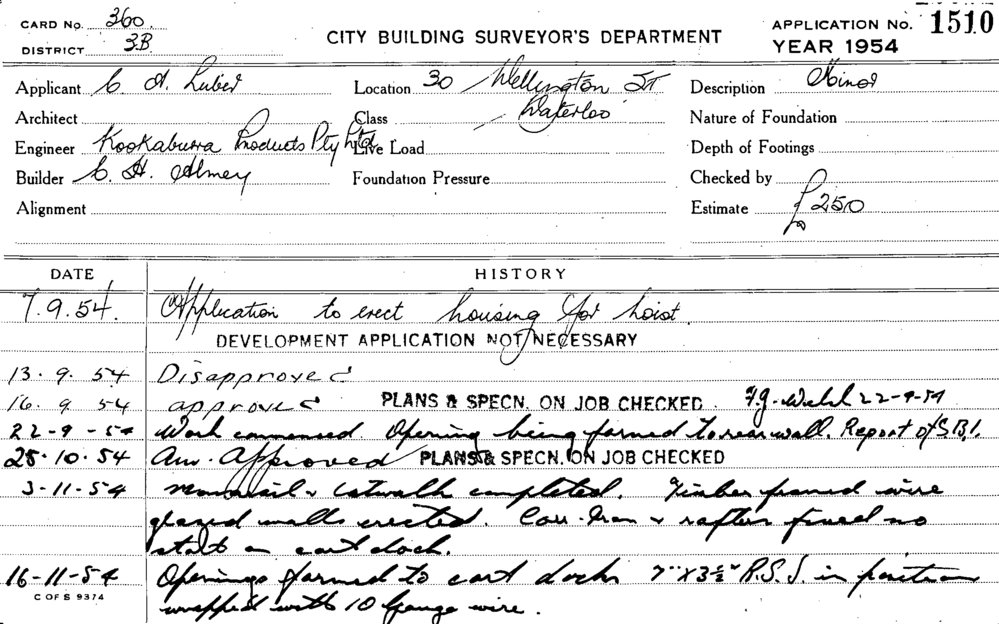 CARD No. 360
DISTRICT 3B
CITY BUILDING SURVEYOR'S DEPARTMENT
APPLICATION No. 1510
YEAR 1954
Applicant C. A. Luber
Location 30 Wellington St
Waterloo
Description Minor
Architect
Class
Nature of Foundation
Engineer Kookaburra Products Pty Ltd
Live Load
Depth of Footings
Builder C. H. Almey
Foundation Pressure
Checked by
Alignment
Estimate £250
DATE HISTORY
7.9.54. Application to erect housing for hoist.
DEVELOPMENT APPLICATION NOT NECESSARY
13.9.54 Disapproved
16.9.54 approved PLANS & SPECN. ON JOB CHECKED. 22-9-54
22-9-54 Work commenced. Opening being formed to rear wall. Report of S.B.I.
25.10.54 Am. Approved PLANS & SPECN. ON JOB CHECKED
3-11-54 Monorail & catwalk completed. Timber framed wire
glazed walls erected. Corr. Iron & rafters fixed no
start on cart dock.
16-11-54 Openings formed to cart dock 7" x 3½" R.S.J. in position
wrapped with 10 gauge wire.
C OF S 9374